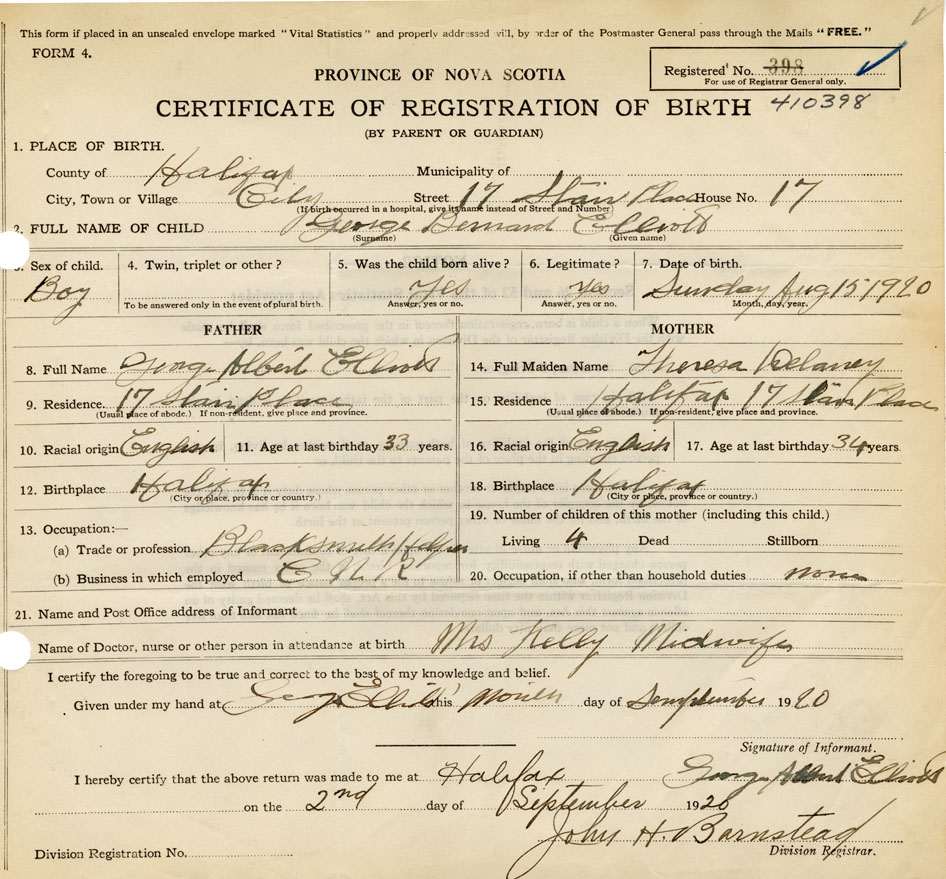 This form if placed in an unsealed envelope marked "Vital Statistics" and properly addressed will, by order of the Postmaster General pass through the Mails "FREE."
FORM 4.
Registered No. 398
For use of Registrar General only.
PROVINCE OF NOVA SCOTIA
CERTIFICATE OF REGISTRATION OF BIRTH 410398
(BY PARENT OR GUARDIAN)
1. PLACE OF BIRTH.
County of Halifax Municipality of
City, Town or Village City Street 17 Stairs Place House No. 17
(If birth occurred in a hospital, give its name instead of Street and Number)
2. FULL NAME OF CHILD George Bernard Elliott
(Surname) (Given name)
3. Sex of child. 4. Twin, triplet or other? 5. Was the child born alive? 6. Legitimate? 7. Date of birth.
Boy Yes Yes Sunday Aug 15 1920
To be answered only in the event of plural birth. Answer, yes or no. Answer, yes or no. Month, day, year.
FATHER MOTHER
8. Full Name George Albert Elliott 14. Full Maiden Name Theresa Delaney
9. Residence. 17 Stairs Place 15. Residence Halifax 17 Stairs Place
(Usual place of abode.) If non-resident, give place and province. (Usual place of abode.) If non-resident, give place and province.
10. Racial origin English 11. Age at last birthday 33 years. 16. Racial origin English 17. Age at last birthday 34 years.
12. Birthplace Halifax 18. Birthplace Halifax
(City or place, province or country.) (City or place, province or country.)
13. Occupation:— 19. Number of children of this mother (including this child.)
(a) Trade or profession Blacksmith Helper Living 4 Dead Stillborn
(b) Business in which employed C N R 20. Occupation, if other than household duties none
21. Name and Post Office address of Informant
Name of Doctor, nurse or other person in attendance at birth Mrs Kelly Midwife
I certify the foregoing to be true and correct to the best of my knowledge and belief.
Given under my hand at this day of 1920
Signature of Informant.
I hereby certify that the above return was made to me at Halifax George Albert Elliott
on the 2nd day of September 1920
John H. Barnstead
Division Registration No. Division Registrar.